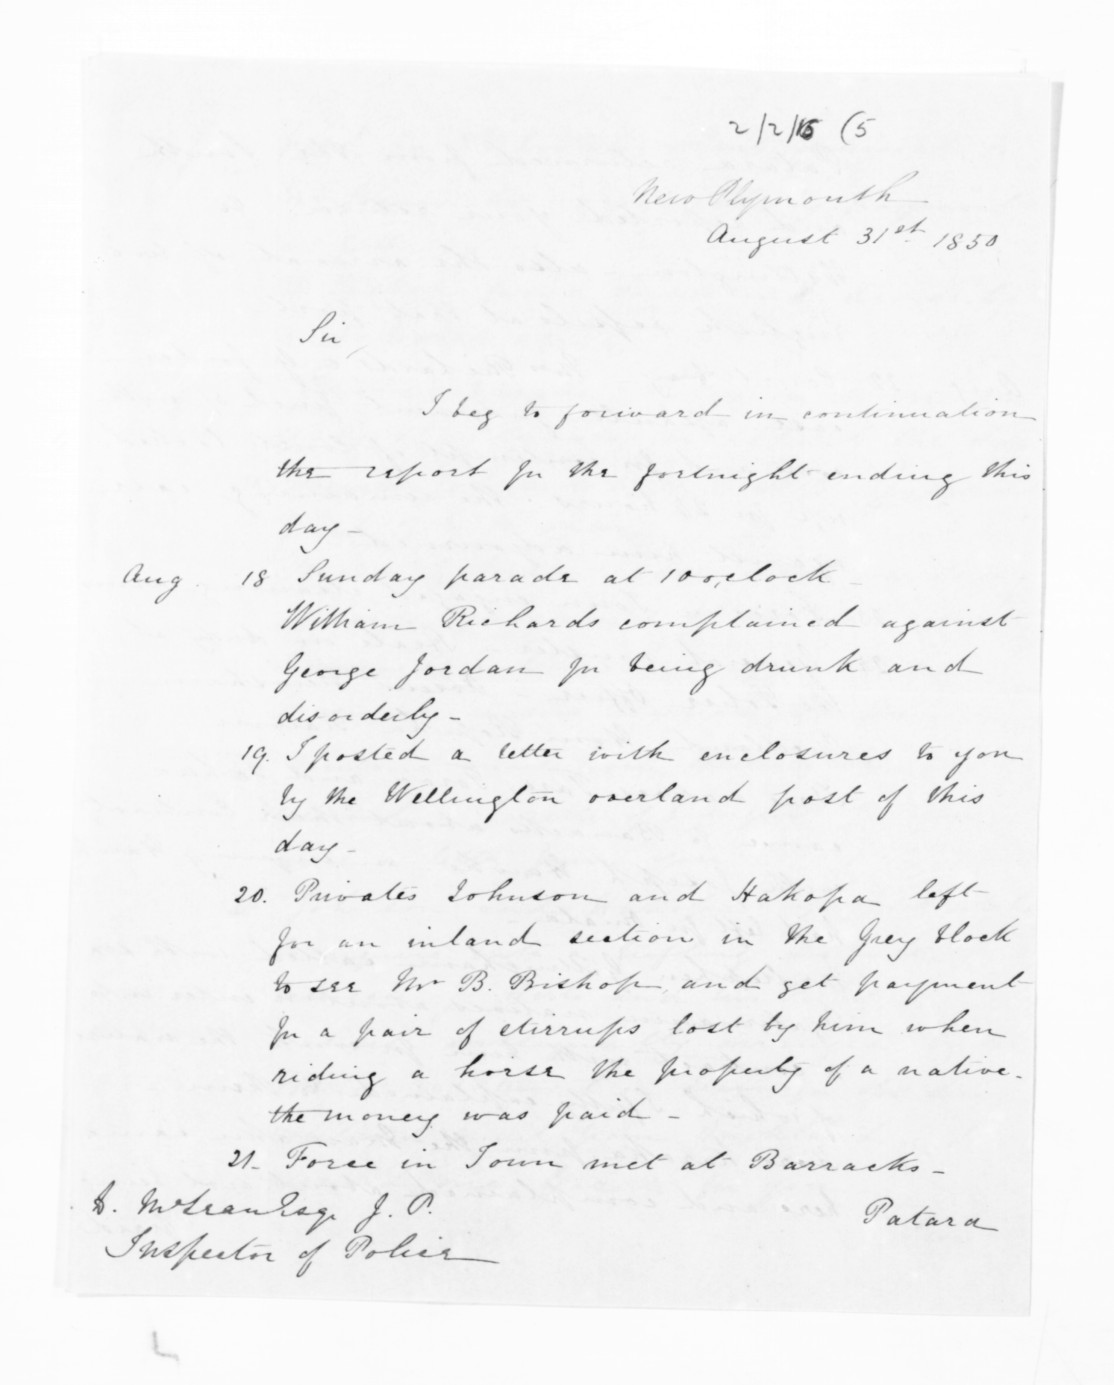 2/2/15 (5
New Plymouth
August 31st 1850
Sir,
I beg to forward in continuation
the report for the fortnight ending this
day -
Aug. 18 Sunday parade at 10 o,clock -
William Richards complained against
George Jordan for being drunk and
disorderly -
19. I posted a letter with enclosures to you
by the Wellington overland post of this
day -
20. Privates Johnson and Hakopa left
for an inland section in the Grey block
to see Mr B. Bishop and get payment
for a pair of stirrups lost by him when
riding a horse the property of a native.
the money was paid -
21 - Force in Town met at Barracks -
Patara
D. McLean Esq. J. P.
Inspector of Police